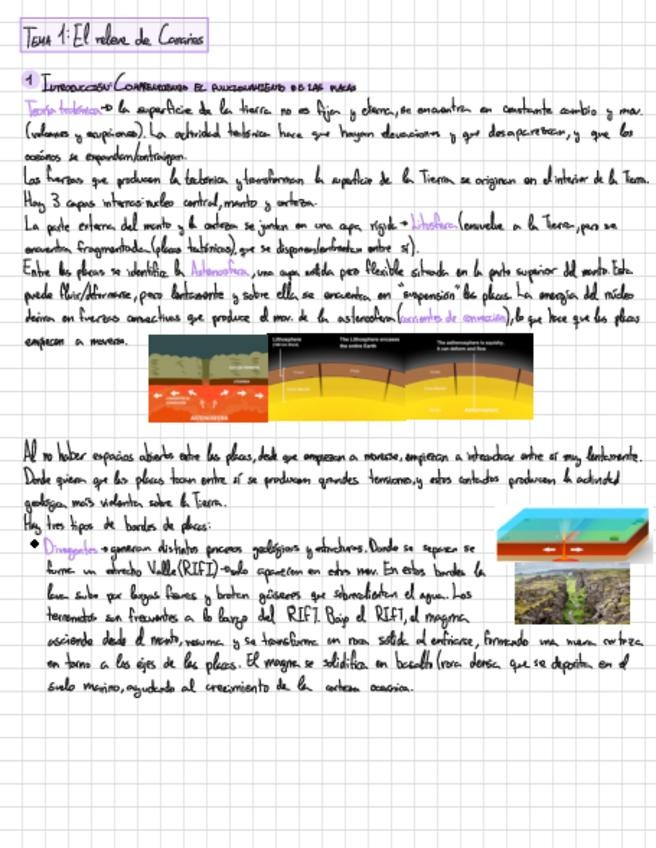 TEMA 1: El relieve de Canarias
1 INTRODUCCIÓN: COMPRENDIENDO EL FUNCIONAMIENTO DE LAS PLACAS
Teoría tectónica → la superficie de la tierra no es fija y eterna, se encuentra en constante cambio y mov.
(volcanes y erupciones). La actividad tectónica hace que hayan elevaciones y que desaparezcan, y que los
océanos se expandan/contraigan.
Las fuerzas que producen la tectónica y transforman la superficie de la Tierra se originan en el interior de la Tierra.
Hay 3 capas internas: núcleo central, manto y corteza.
La parte externa del manto y la corteza se juntan en una capa rígida → Litosfera (envuelve a la Tierra, pero se
encuentra fragmentada (placas tectónicas), que se disponen/enfrentan entre sí).
Entre las placas se identifica la Astenosfera, una capa sólida pero flexible situada en la parte superior del manto. Esta
puede fluir/deformarse, pero lentamente y sobre ella se encuentra en "suspensión" las placas. La energía del núcleo
deriva en fuerzas convectivas que produce el mov. de la astenosfera (corrientes de convección), lo que hace que las placas
empiecen a moverse.
Lithosphere
The Lithosphere encases
the entire Earth
The asthenosphere is squishy,
it can deform and flow
ASTENOSFERA
Al no haber espacios abiertos entre las placas, desde que empiezan a moverse, empiezan a interactuar entre sí muy lentamente.
Donde quiera que las placas tocan entre sí se producen grandes tensiones, y estos contactos producen la actividad
geológica más violenta sobre la Tierra.
Hay tres tipos de bordes de placas:
• Divergentes → generan distintos procesos geológicos y estructuras. Donde se separan se
forma un estrecho Valle (RIFT) → solo aparecen en este mov. En estos bordes la
lava sube por largas fisuras y brotan géiseres que sobrecalientan el agua. Los
terremotos son frecuentes a lo largo del RIFT. Bajo el RIFT, el magma
asciende desde el manto, rezuma y se transforma en roca sólida al enfriarse, formando una nueva corteza
en torno a los ejes de las placas. El magma se solidifica en basalto (roca densa que se deposita en el
suelo marino, ayudando al crecimiento de la corteza oceánica.